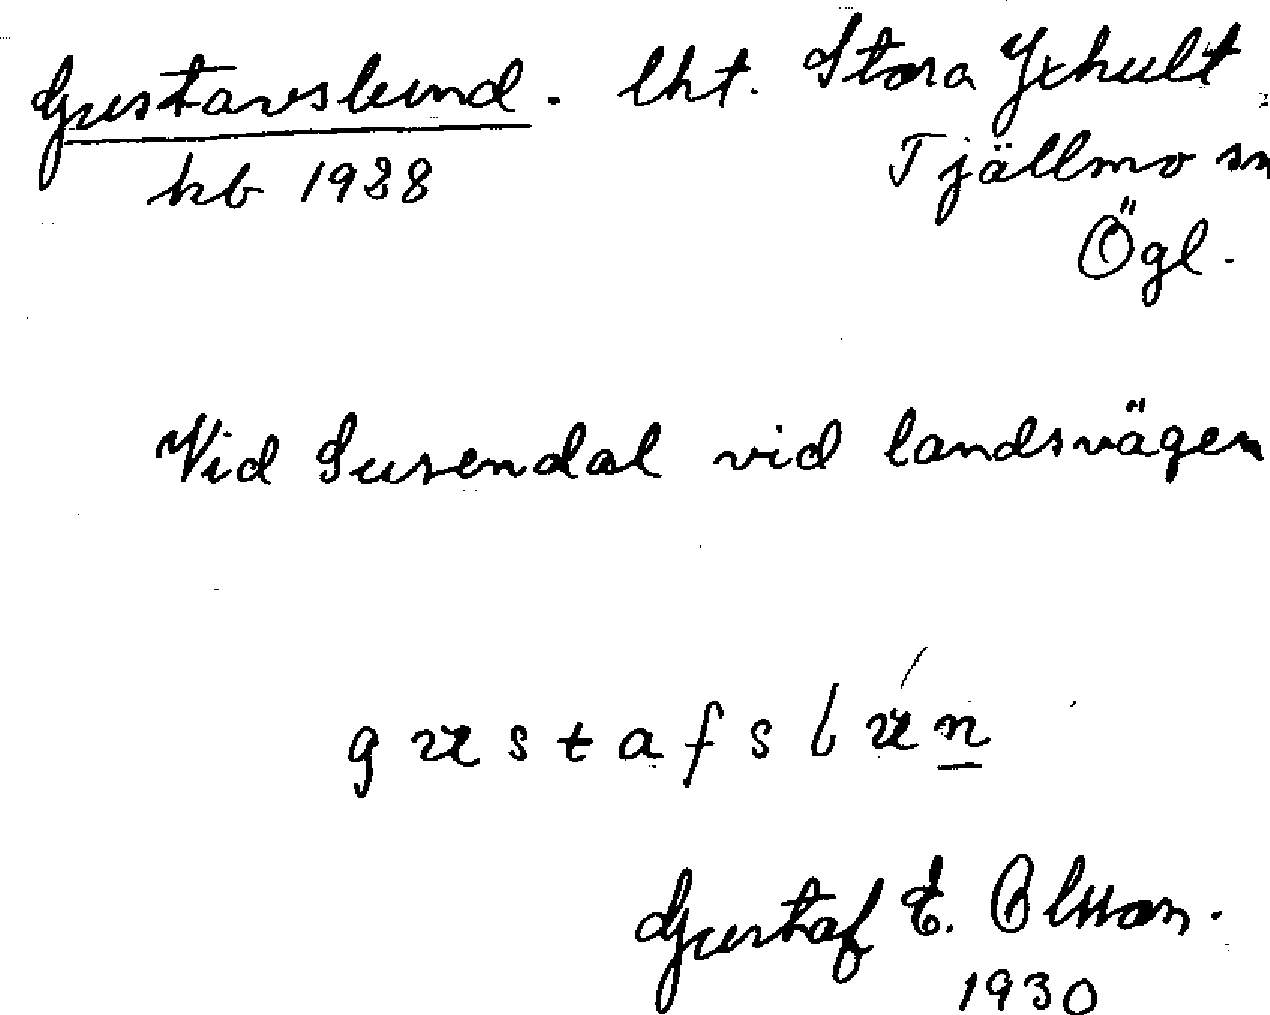 Gustavslund. lht. Stora Yxhult
hb 1938 Tjällmo sn
Ögl.
Vid Susendal vid landsvägen
gustafslún
Gustaf E. Olsson.
1930